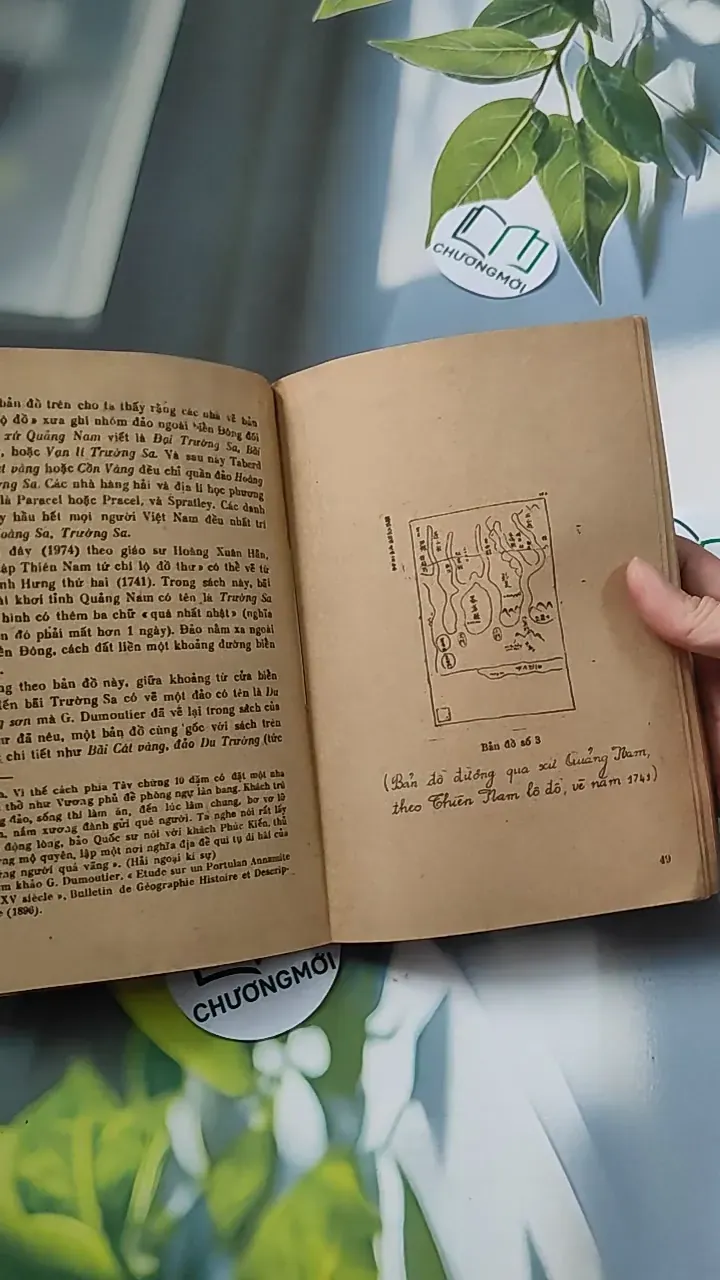 CHƯƠNGMỚI
bản đồ trên cho ta thấy rằng các nhà vẽ bản
lộ đồ» xưa ghi nhóm đảo ngoài Biển Đông đối
xứ Quảng Nam viết là Đại Trường Sa, Bãi
, hoặc Vạn lí Trường Sa. Và sau này Taberd
t vàng hoặc Cồn Vàng đều chỉ quần đảo Hoàng
ng Sa. Các nhà hàng hải và địa lí học phương
là Paracel hoặc Pracel, và Spratley. Các danh
y hầu hết mọi người Việt Nam đều nhất trí
oàng Sa, Trường Sa.
đây (1974) theo giáo sư Hoàng Xuân Hãn,
ập Thiên Nam tứ chí lộ đồ thư» có thể vẽ từ
nh Hưng thứ hai (1741). Trong sách này, bãi
i khơi tỉnh Quảng Nam có tên là Trường Sa
hình có thêm ba chữ «quá nhất nhật» (nghĩa
n đó phải mất hơn 1 ngày). Đảo nằm xa ngoài
ên Đông, cách đất liền một khoảng đường biển
ng theo bản đồ này, giữa khoảng từ cửa biển
đến bãi Trường Sa có vẽ một đảo có tên là Du
g sơn mà G. Dumoutier đã vẽ lại trong sách của
ư đã nêu, một bản đồ cùng gốc với sách trên
chi tiết như Bãi Cát vàng, đảo Du Trường (tức
a. Vì thế cách phía Tây chừng 10 dặm có đặt một nhà
thờ như Vương phủ để phòng ngự lân bang. Khách trú
g đảo, sống thì làm ăn, đến lúc lâm chung, bơ vơ lữ
, nắm xương đành gửi quê người. Ta nghe nói rất lấy
động lòng, bảo Quốc sư nói với khách Phúc Kiến, thủ
ng mộ quyên, lập một nơi nghĩa địa để qui tụ di hài của
ng người quá vãng». (Hải ngoại kí sự)
m khảo G. Dumoutier, «Etude sur un Portulan Annamite
XV siècle», Bulletin de Géographie Histoire et Descrip-
e (1896).
Bản đồ số 3
(Bản đồ đường qua xứ Quảng Nam,
theo Thiên Nam lộ đồ, vẽ năm 1741)
49
CHƯƠNGMỚI